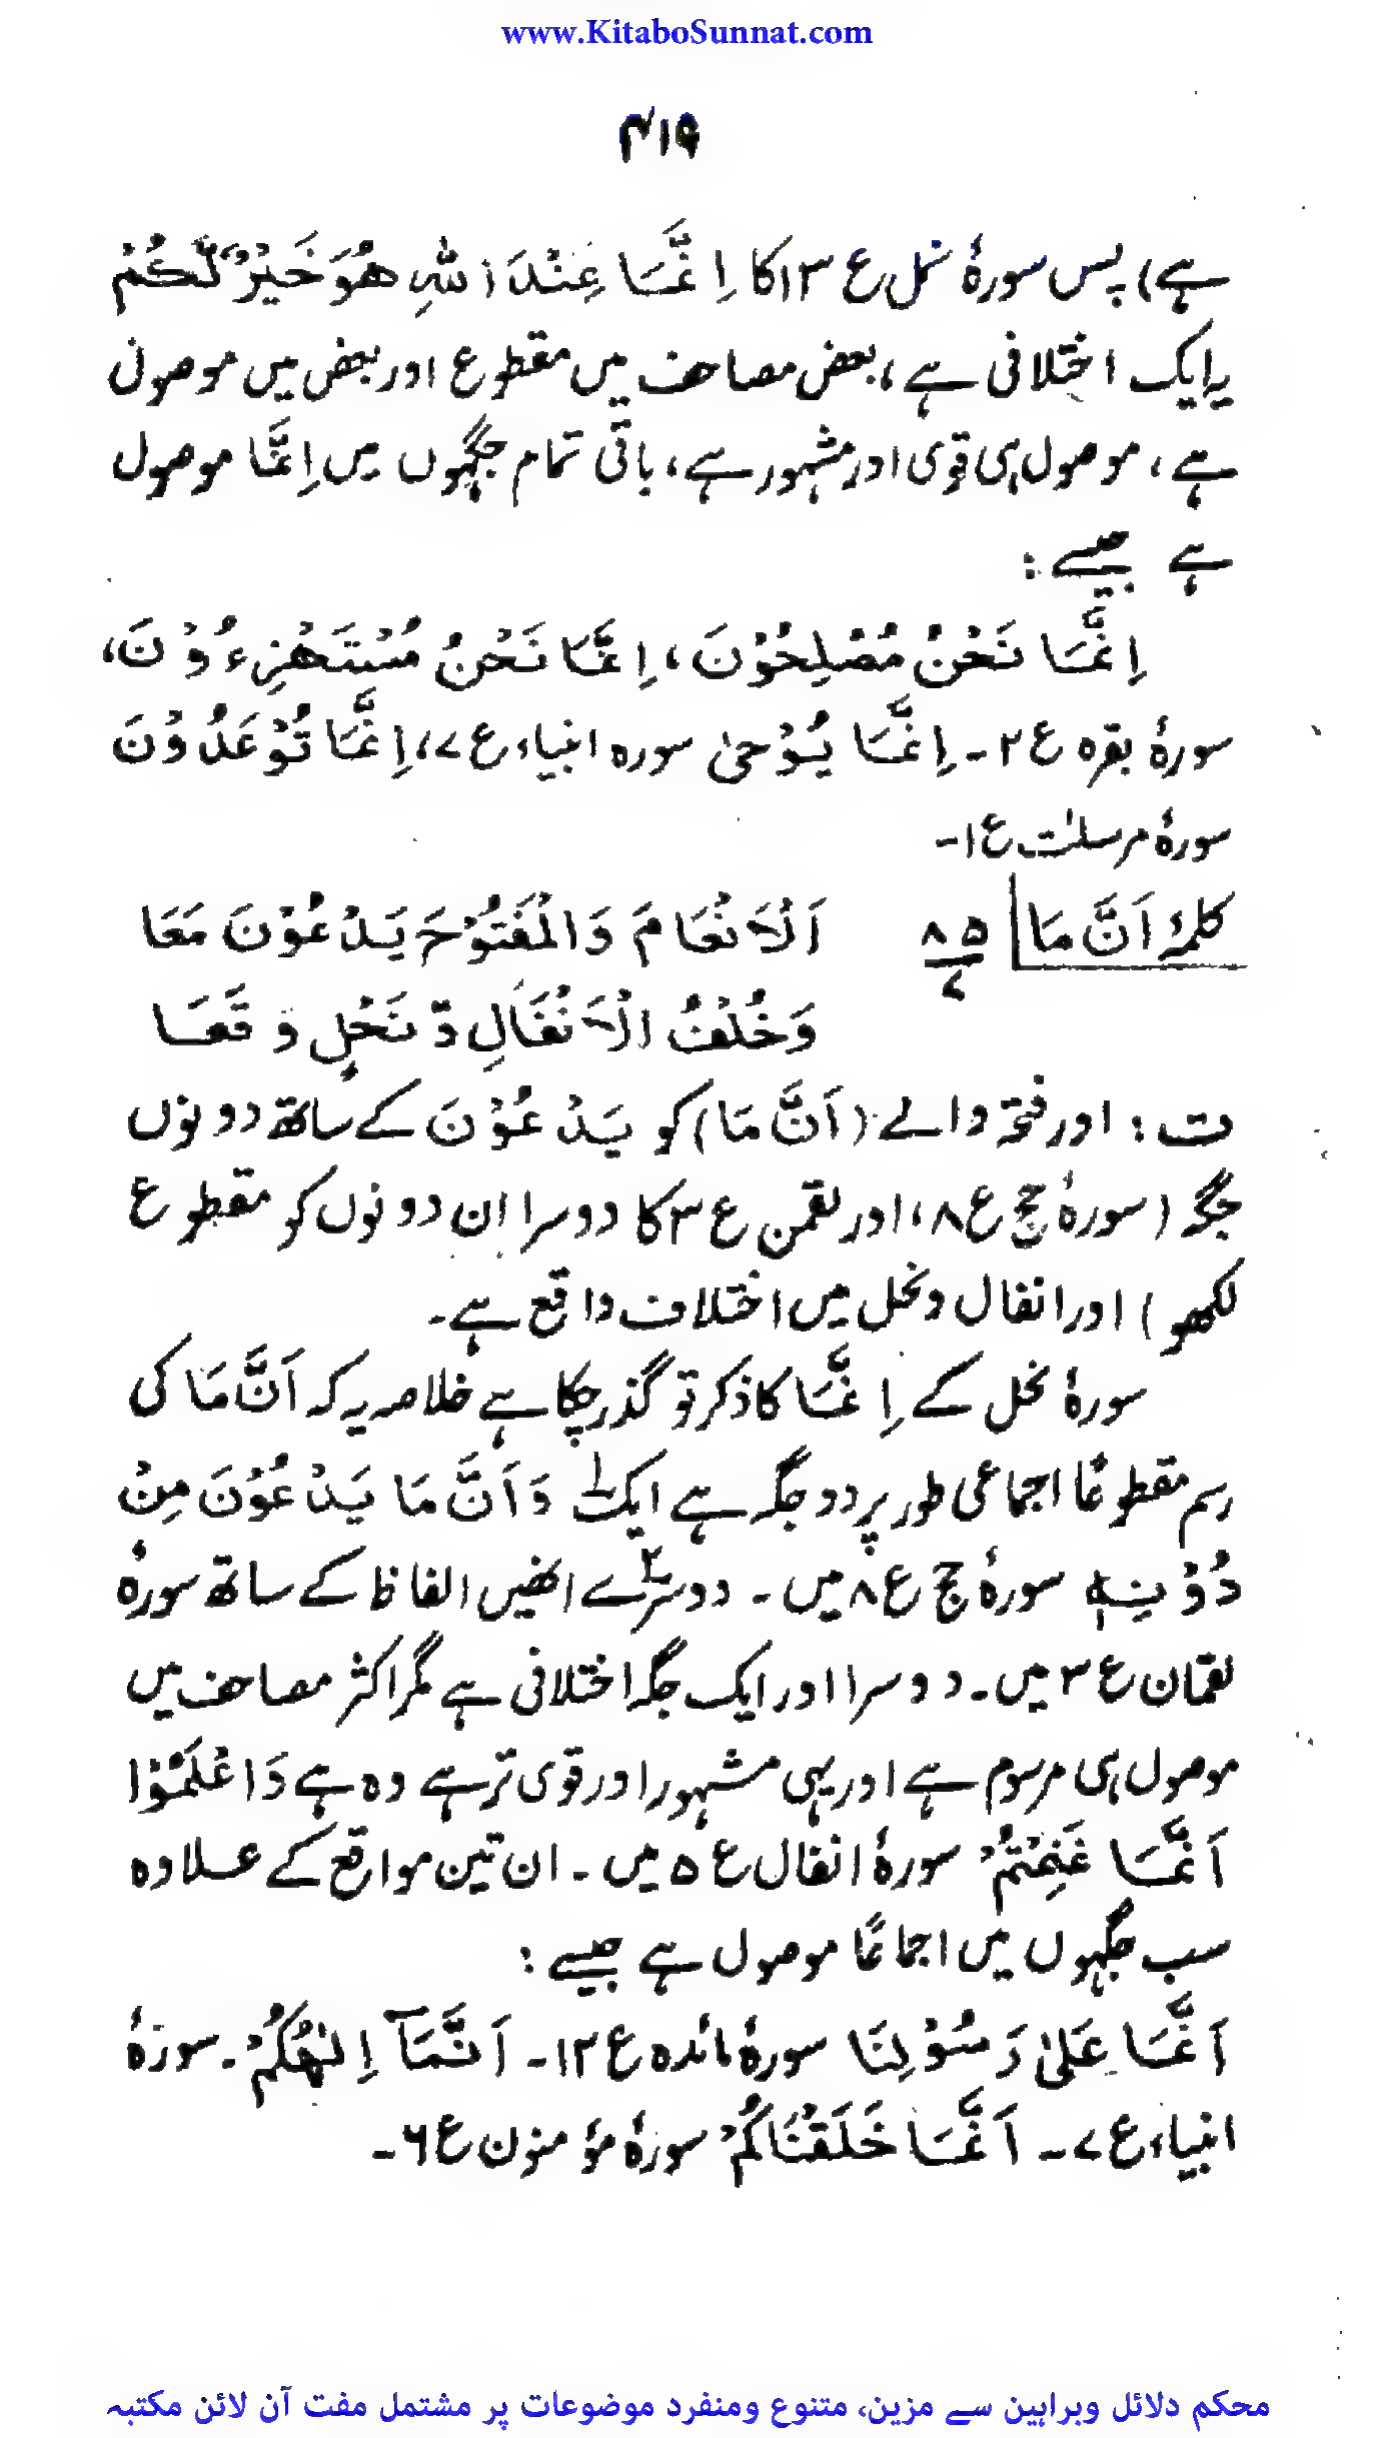 www.KitaboSunnat.com
۴۱۹
ہے) پس سورۂ نحل ع ۱۳ کا اِنَّمَا عِنْدَ اللّٰہِ ھُوَ خَیْرٌ لَّکُمْ
یہ ایک اختلافی ہے، بعض مصاحف میں مقطوع اور بعض میں موصول
ہے، موصول ہی قوی اور مشہور ہے، باقی تمام جگہوں میں اِنَّمَا موصول
ہے جیسے:
اِنَّمَا نَحْنُ مُصْلِحُوْنَ، اِنَّمَا نَحْنُ مُسْتَھْزِءُوْنَ،
سورۂ بقرہ ع ۲۔ اِنَّمَا یُوْحیٰ سورہ انبیاء ع ۷، اِنَّمَا تُوْعَدُوْنَ
سورۂ مرسلٰت ع ۱۔
کلمۂ اَنَّ مَا ۸۵/۷ اَلْاَنْعَامَ وَالْمَفْتُوْحَ یَدْعُوْنَ مَعَا
وَخُلْفُ الْاَنْفَالِ وَ نَحْلٍ وَقَعَا
ت: اور فتحہ والے (اَنَّ مَا) کو یَدْعُوْنَ کے ساتھ دونوں
جگہ (سورۂ حج ع ۸، اور لقمٰن ع ۳ کا دوسرا ان دونوں کو مقطوع
لکھو) اور انفال ونحل میں اختلاف واقع ہے۔
سورۂ نحل کے اِنَّمَا کا ذکر تو گذر چکا ہے خلاصہ یہ کہ اَنَّ مَا کی
رسم مقطوعًا اجماعی طور پر دو جگہ ہے ایک ۱ وَاَنَّ مَا یَدْعُوْنَ مِنْ
دُوْنِہٖ سورۂ حج ع ۸ میں۔ دوسرے ۲ انھیں الفاظ کے ساتھ سورۂ
لقمان ع ۳ میں۔ دوسرا اور ایک جگہ اختلافی ہے مگر اکثر مصاحف میں
موصول ہی مرسوم ہے اور یہی مشہور اور قوی تر ہے وہ ہے وَاعْلَمُوْا
اَنَّمَا غَنِمْتُمْ سورۂ انفال ع ۵ میں۔ ان تین مواقع کے علاوہ
سب جگہوں میں اجماعًا موصول ہے جیسے:
اَنَّمَا عَلیٰ رَسُوْلِنَا سورۂ مائدہ ع ۱۲۔ اَنَّمَآ اِلٰھُکُمْ۔ سورۂ
انبیاء ع ۷۔ اَنَّمَا خَلَقْنَاکُمْ سورۂ مؤمنون ع ۶۔
محکم دلائل وبراہین سے مزین، متنوع ومنفرد موضوعات پر مشتمل مفت آن لائن مکتبہ